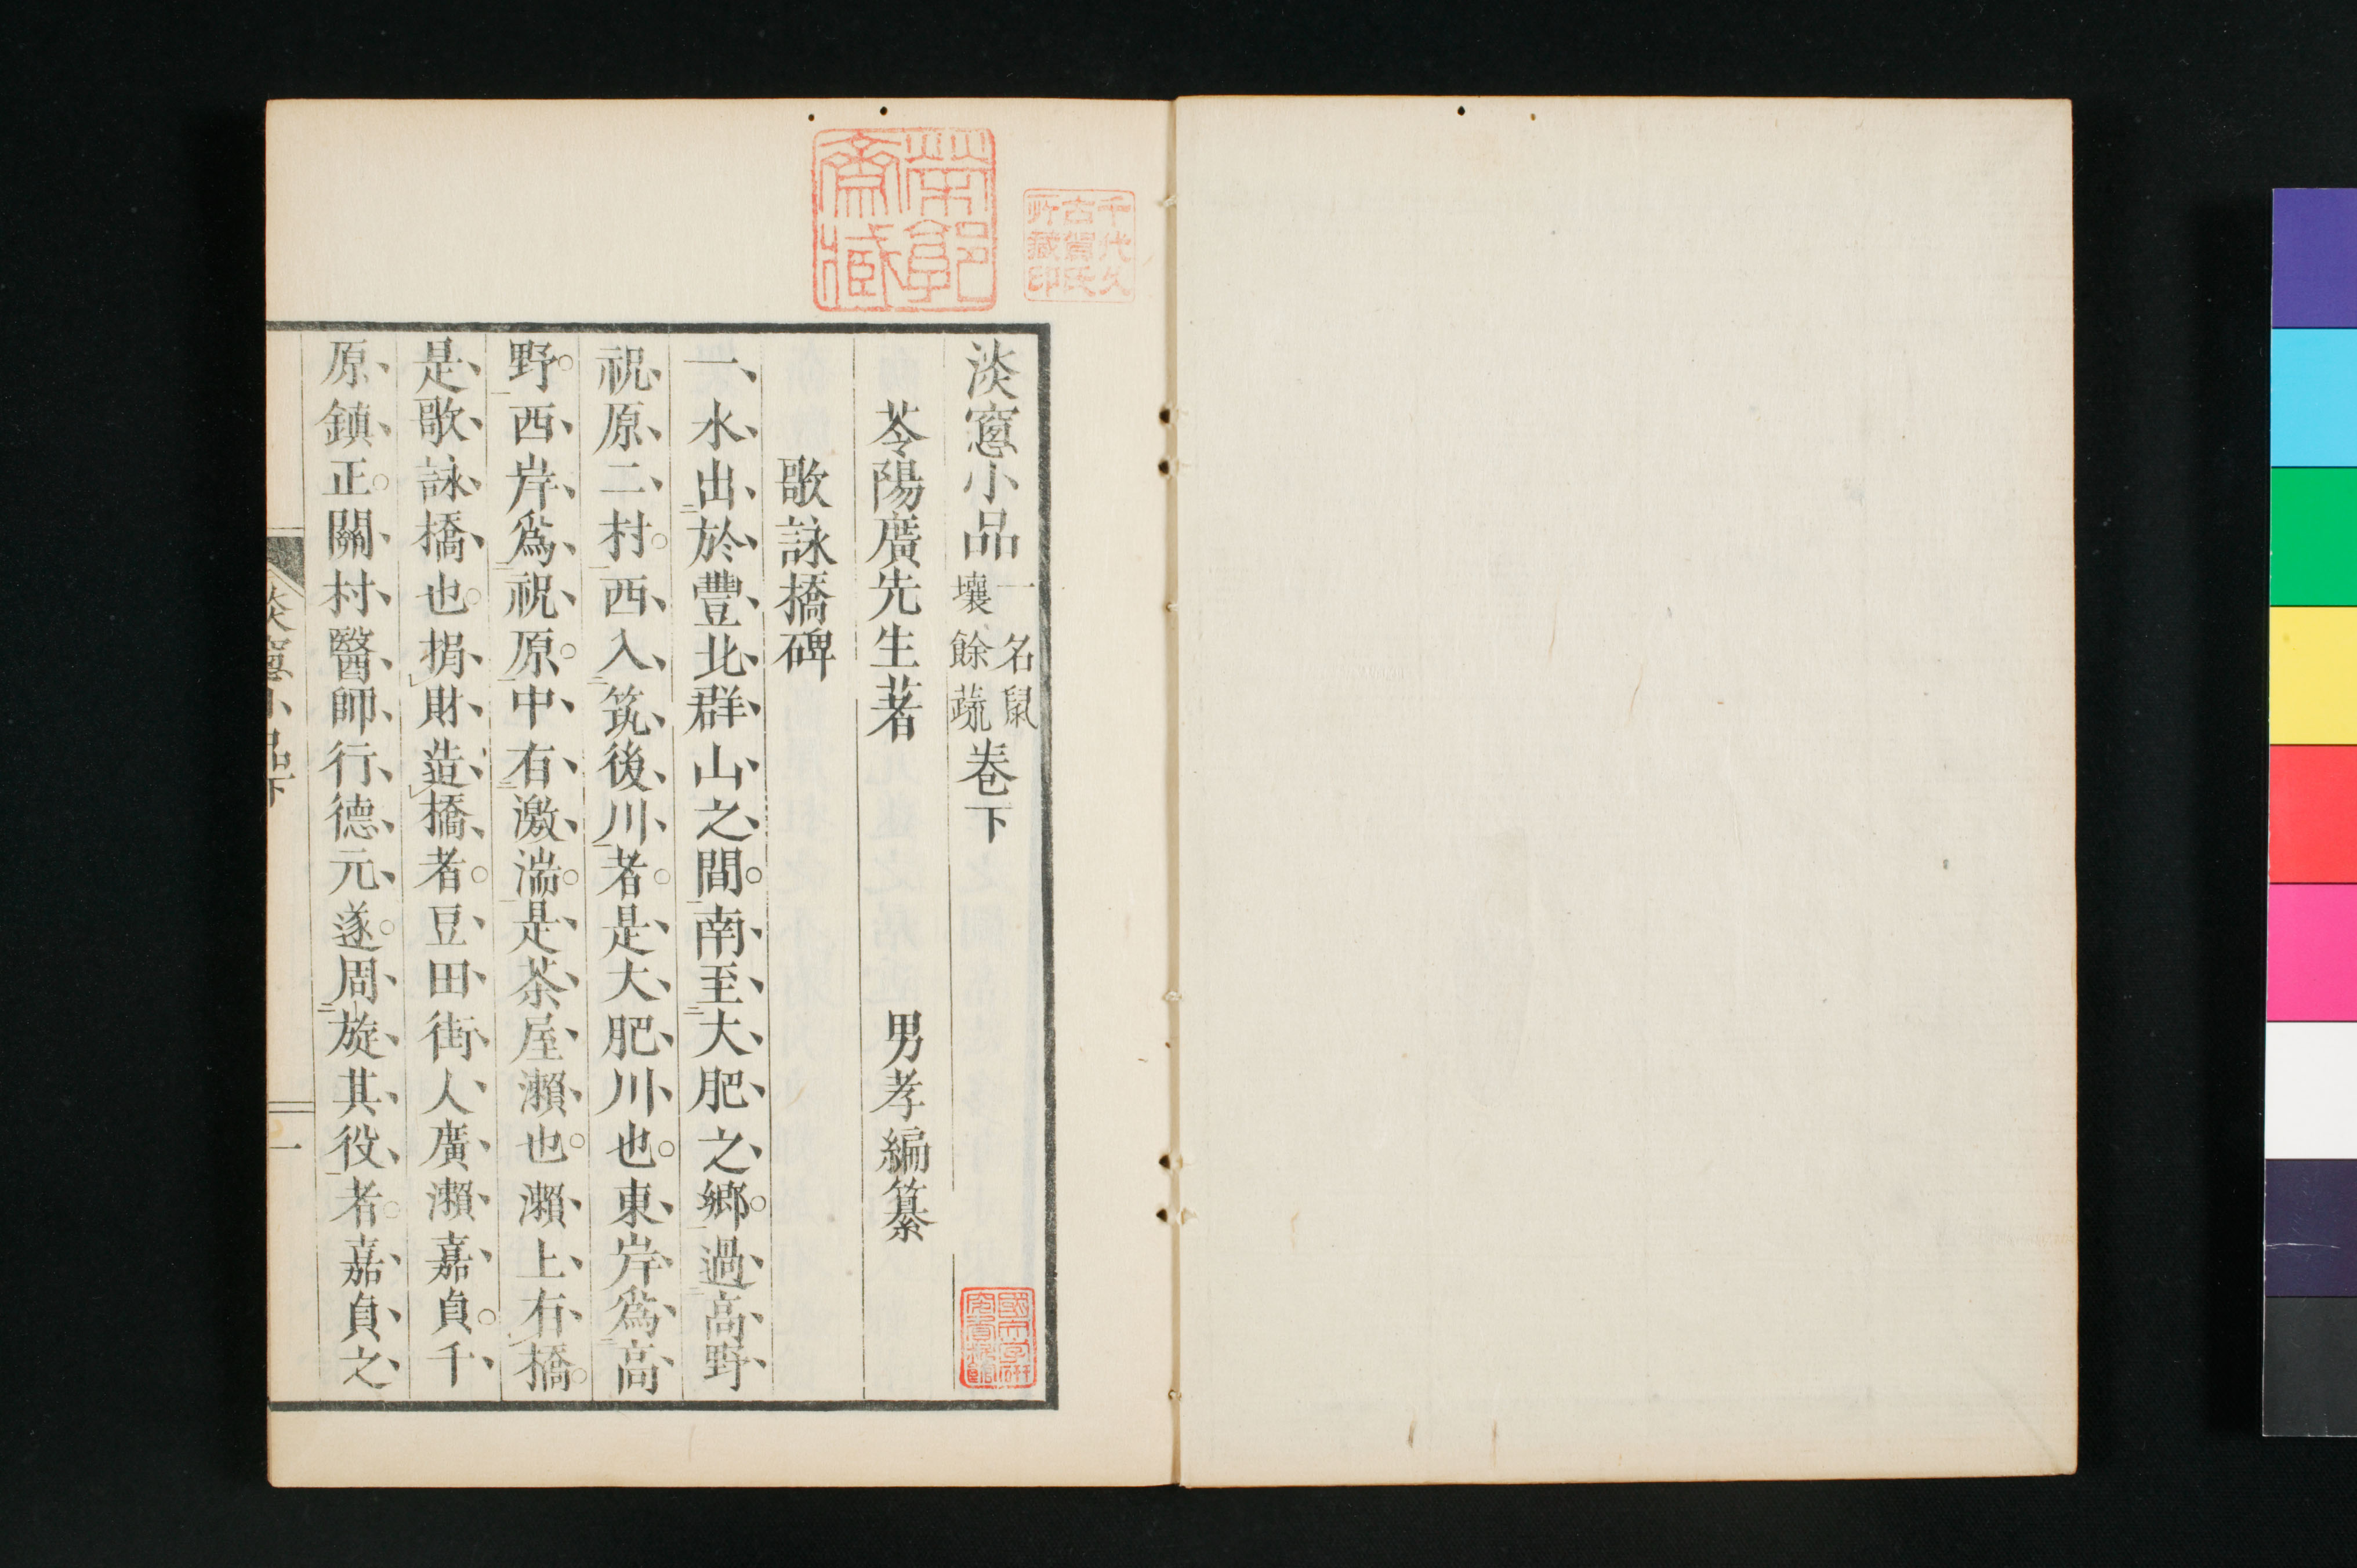 淡窻小品一名鼠壤餘蔬卷下
苓陽廣先生著　男孝編纂
歌詠橋碑
一水出於豐北群山之間。南至大肥之鄉。過高野
祝原二村。西入筑後川者。是大肥川也。東岸爲高
野。西岸爲祝原。中有激湍。是茶屋瀬也。瀬上有橋。
是歌詠橋也。捐財造橋者。豆田街人廣瀬嘉貞。千
原鎮正。關村醫師行德元遂。周旋其役者。嘉貞之
淡窻小品下
一
千代久
古賀氏
所藏印